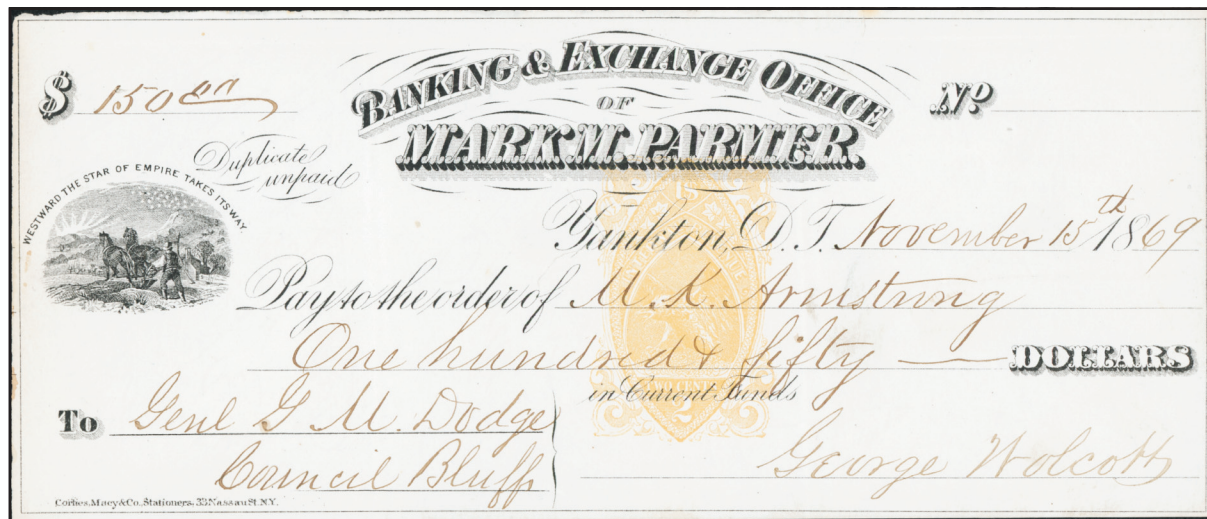 $ 150 00
BANKING & EXCHANGE OFFICE
OF
MARK M. PARMER.
No
Duplicate
unpaid
WESTWARD THE STAR OF EMPIRE TAKES ITS WAY.
Yankton, D. T. November 15th 1869
Pay to the order of M. K. Armstrong
One hundred & fifty — DOLLARS
in Current Funds
TWO CENTS
2
To Genl G M. Dodge
Council Bluffs
George Wolcott
Corlies, Macy & Co., Stationers, 33 Nassau St. N.Y.